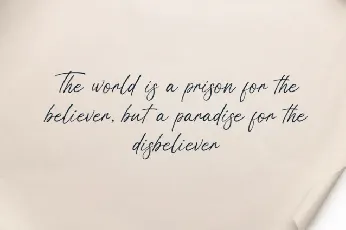 The world is a prison for the
believer, but a paradise for the
disbeliever